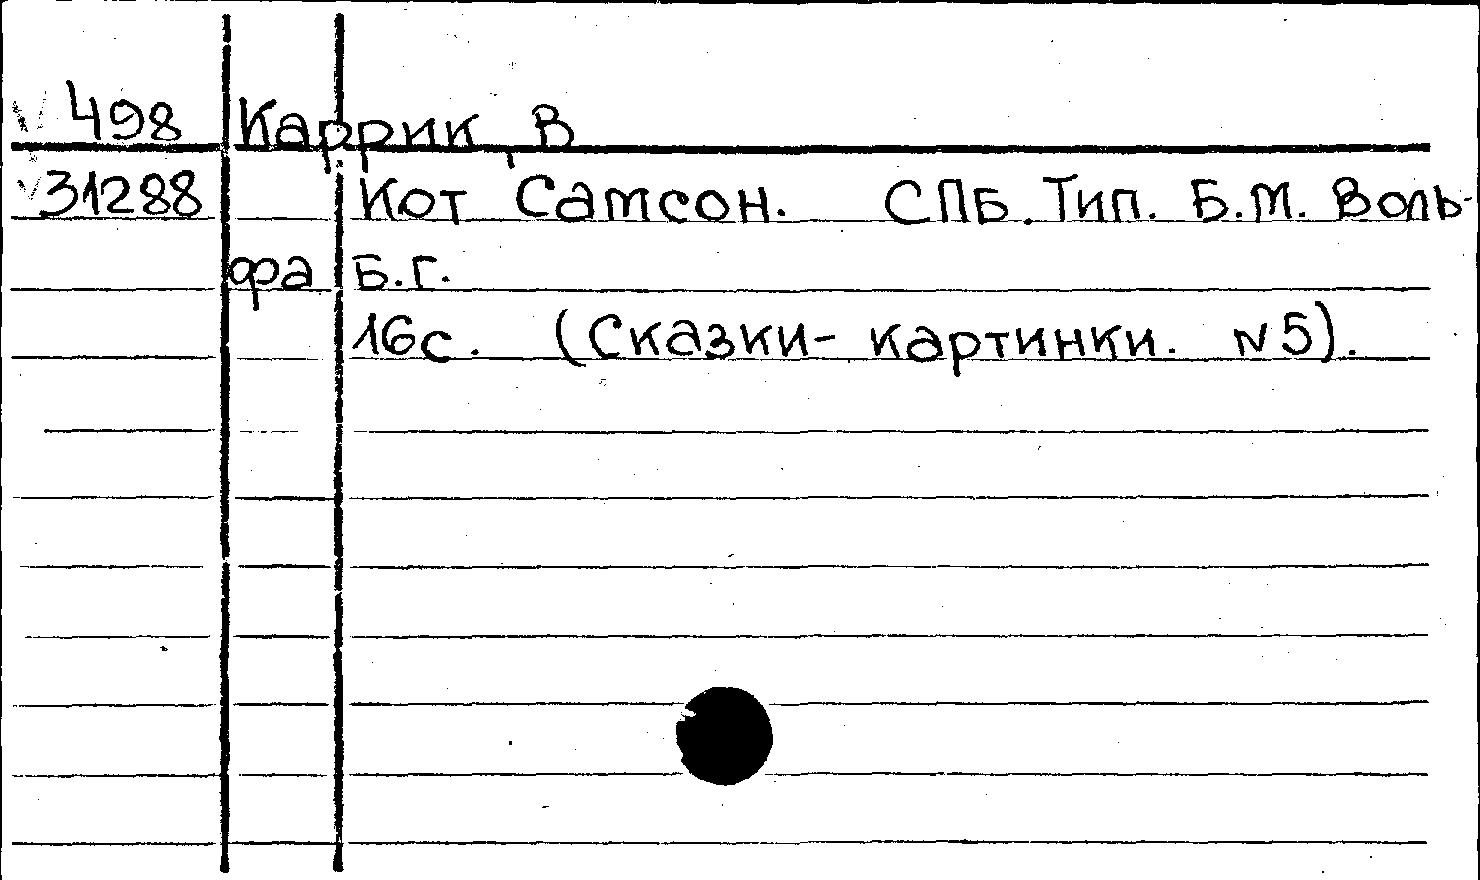 V 498 Каррик, В
V 31288 Кот Самсон. СПБ. Тип. Б.М. Воль-
фа Б.г.
16с. (Сказки-картинки. N5).